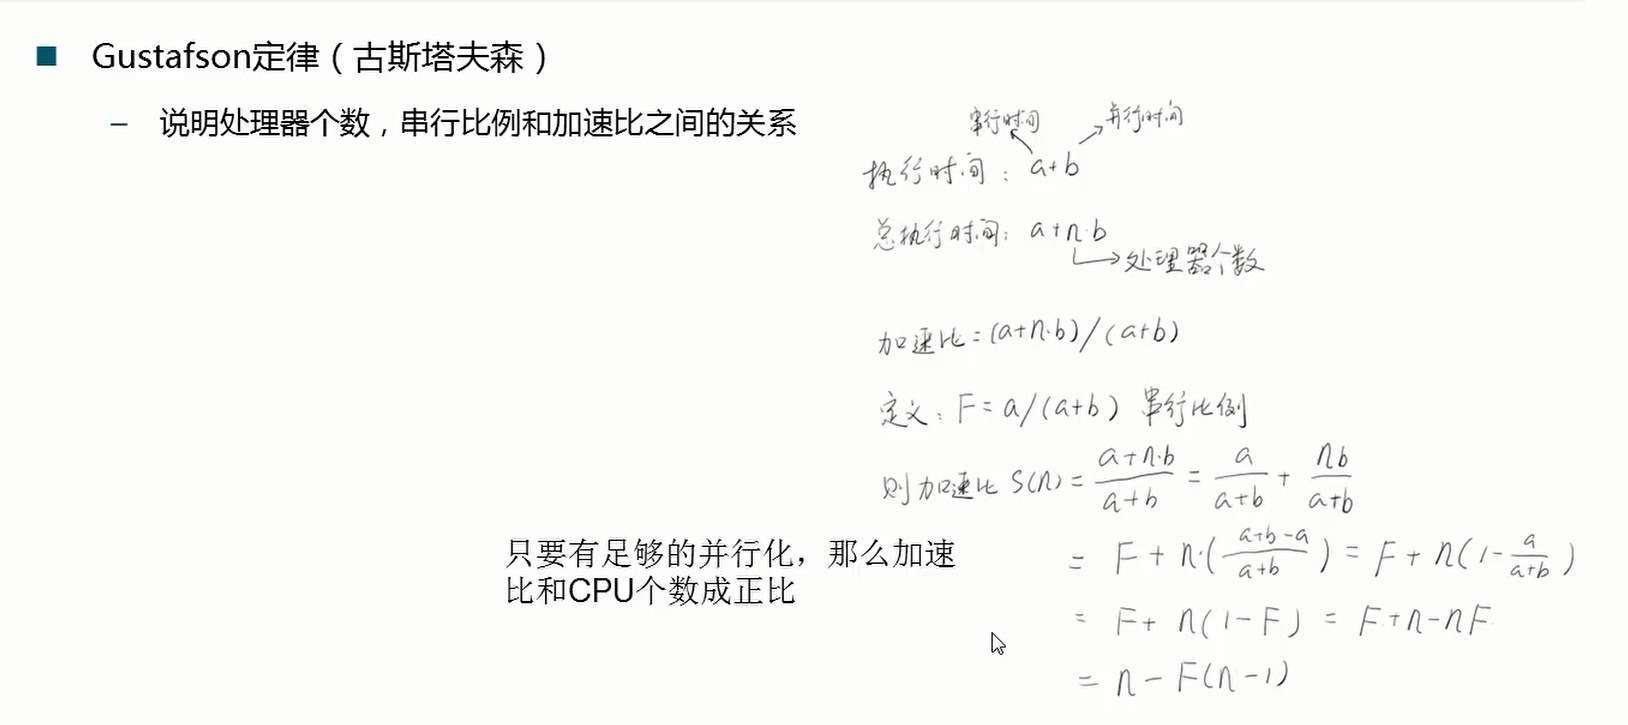 Gustafson定律（古斯塔夫森）
– 说明处理器个数，串行比例和加速比之间的关系
串行时间 并行时间
执行时间：a+b
总执行时间：a+n·b
处理器个数
加速比=(a+n·b)/(a+b)
定义：F=a/(a+b) 串行比例
则加速比 S(n)= \frac{a+n·b}{a+b} = \frac{a}{a+b} + \frac{nb}{a+b}
= F+n·(\frac{a+b-a}{a+b}) = F+n(1-\frac{a}{a+b})
= F+n(1-F) = F+n-nF
= n-F(n-1)
只要有足够的并行化，那么加速
比和CPU个数成正比